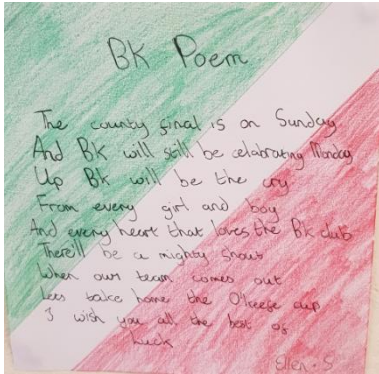 BK Poem
The county final is on Sunday
And BK will still be celebrating Monday
Up BK will be the cry
From every girl and boy
And every heart that loves the BK club
There'll be a mighty shout
When our team comes out
Lets take home the O'keefe cup
I wish you all the best of
luck
Ellen. S